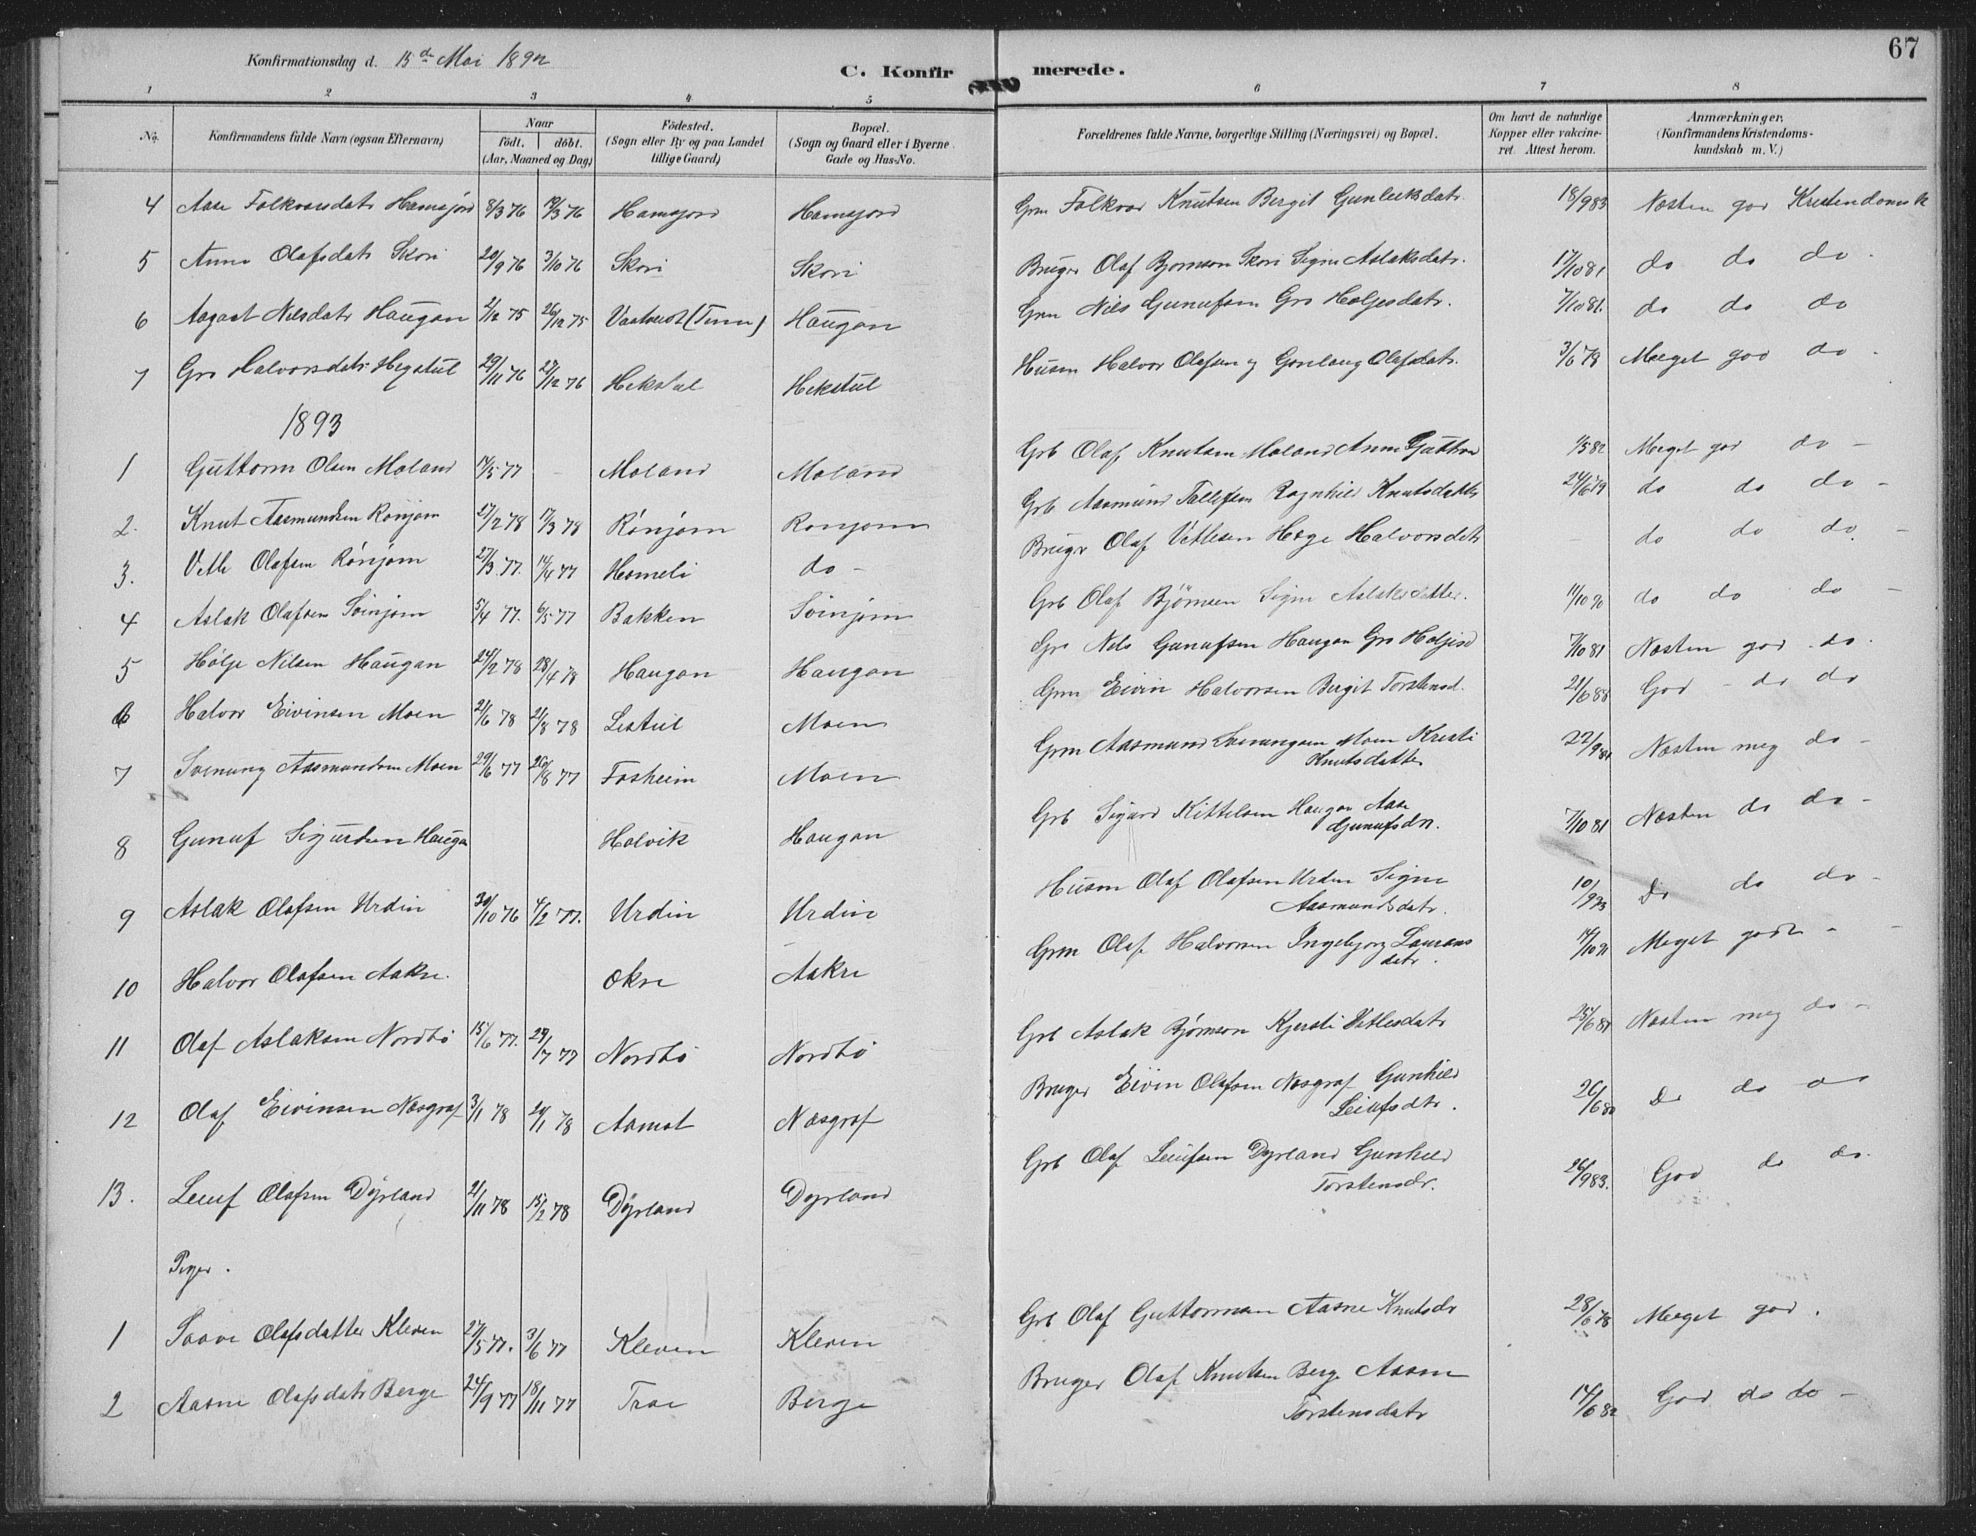 67
Konfirmationsdag d. 15de Mai 1892
C. Konfirmerede.
1 2 3 4 5 6 7 8
No. Konfirmandens fulde Navn (ogsaa Efternavn) Naar födt. döbt. (Aar, Maaned og Dag) Födested. (Sogn eller By og paa Landet tillige Gaard) Bopæl. (Sogn og Gaard eller i Byerne Gade og Hus-No. Forældrenes fulde Navne, borgerlige Stilling (Næringsvei) og Bopæl. Om havt de naturlige Kopper eller vakcineret. Attest herom. Anmærkninger. (Konfirmandens Kristendomskundskab m. V.)
4 Aase Folkvorsdatr Hamsjord 8/3 76 19/3 76 Hamsjord Hamsjord Grm Folkvor Knutsen Bergit Gunleiksdatr 18/9 83 Næsten god Kristendomsk
5 Anne Olafsdatr Skori 20/9 76 3/10 76 Skori Skori Bruger Olaf Bjornson Skori Signe Aslaksdatr. 17/10 81 do do do
6 Aagaat Nilsdatr Haugan 2/12 75 26/12 75 (Tinn) Haugan Grm Nils Gunufsen Gro Holjesdatr. 7/10 81. do do do
7 Gro Halvorsdatr Hegstul 29/11 76 27/12 76 Hekstul Hekstul Husm Halvor Olafsen og Gunlaug Olafsdatr. 3/6 78 Meget god do -
1893
1 Guttorm Olsen Moland 14/5 77 - Moland Moland Grb Olaf Knutsen Moland Anne 1/5 82 Meget god do -
2. Knut Aasmundsen Rønjom 27/2 78 17/3 78 Rønjom Ronjom Grb Aasmund Tallefsen Ragnhild Knutsdatter 24/6 79 do do do -
3. Vetle Olafsen Rønjom 27/3 77. 14/4 77 Homeli do - Bruger Olaf Vetlesen Hæge Halvorsdatr - do do do. -
4 Aslak Olafsen Soinjom 5/4 77. 6/5 77 Bakken Soinjom Grb Olaf Bjørnsen Signe Aslaksdatter. 11/10 90 do do do -
5 Holje Nilsen Haugan 24/2 78 28/4 78 Haugan Haugan Nils Gunufsen Haugan Gro Holjesd 7/10 81 Næsten god do.
6 Halvor Eivinsen Moen 2/6 78 2/8 78 Lestul Moen Grm Eivin Halvorsen Bergit Torstensd. 21/6 88 God - do do
7 Svenung Aasmundsen Moen 29/6 77 26/8 77 Fosheim Moen Grm Aasmund Svenungsen Moen Kristi Knutsdatter 22/9 81 Næsten meg do -
8 Gunuf Sigurdsen Haugan Holvik Haugan Grb Sigurd Kittelsen Haugan Aase Gunufsdr. 7/10 81 Næsten do do -
9 Aslak Olafsen Urdin 30/10 76 4/2 77. Urdin Urdin Husm Olaf Olafsen Urden Signe Aasmundsdatr. 10/9 83 Do do do -
10 Halvor Olafsen Aakre. Okre Aakre Grm Olaf Halvorsen Ingebjorg Lauransdatr. 14/10 91 Meget godt - -
11 Olaf Aslaksen Nordbö 15/6 77. 29/7 77 Nordbö Nordbö Grb Aslak Bjørnson Kjersti Vetlesdatr 25/6 81 Næsten meg do -
12 Olaf Eivinsen Næsgraf 3/1 78 20/1 78 Aamot Næsgraf Bruger Eivin Olafsen Næsgraf Gunhild Leiufsdtr. 26/6 80 Do do do
13. Leiuf Olafsen Dyrland 2/11 78 15/2 78 Dyrland Dyrland Grb Olaf Leiufsen Dyrland Gunhild Torstensdr. 26/9 83. God do do.
Piger.
1 Saave Olafsdatter Kleven 27/5 77. 3/6 77 Kleven Kleven Grb Olaf Guttormsen Aasne Knutsdr 28/6 78 Meget god.
2 Aasne Olafsdatr Berge 24/9 77 18/11 77 Trae Berge Bruger Olaf Knutsen Berge Aasne Torstensdatr 14/6 82 God do do -